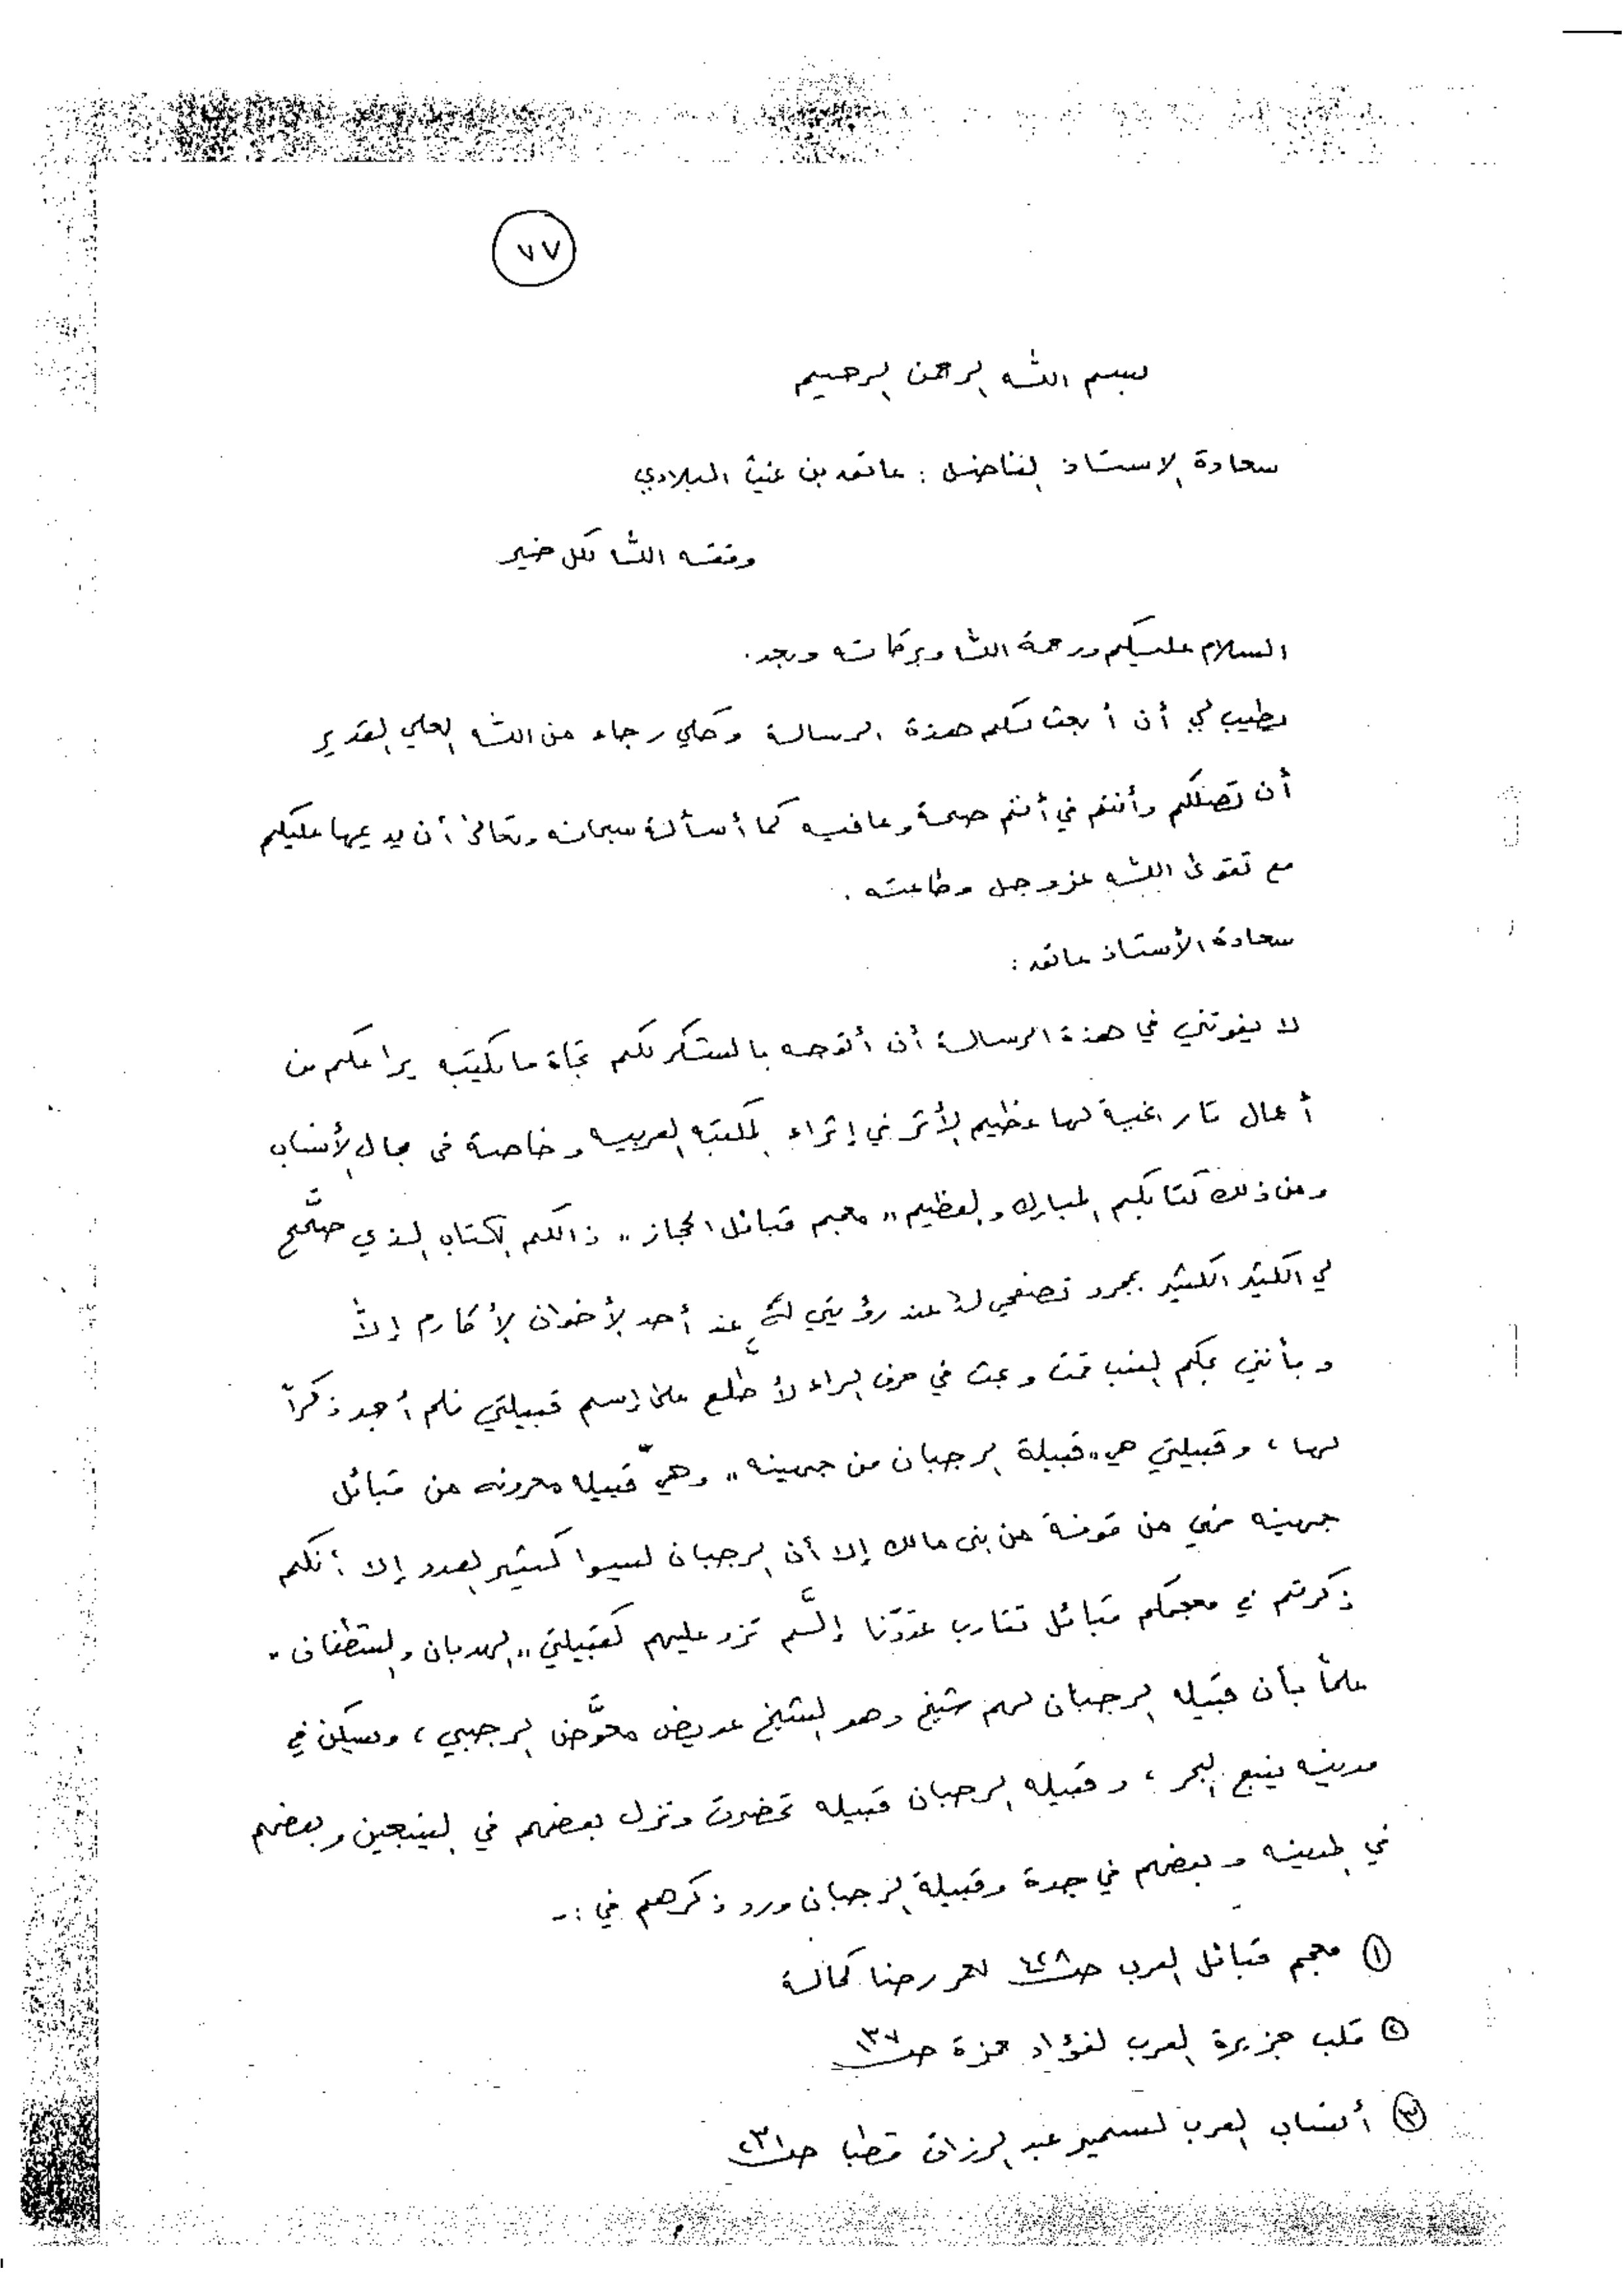 ٧٧
بسم الله الرحمن الرحيم
سعادة الاستاذ الفاضل : عاتق بن غيث البلادي
وفقه الله لكل خير
السلام عليكم ورحمة الله وبركاته وبعد .
يطيب لي أن أبعث لكم هذة الرسالة وكلي رجاء من الله العلي القدير
أن تصلكم وأنتم في أتم صحة وعافيه كما أسألة سبحانه وتعالى أن يديمها عليكم
مع تقوى الله عز وجل وطاعته .
سعادة الأستاذ عاتق :
لا يفوتني في هذة الرسالة أن أتوجه بالشكر لكم تجاة ما يكتبه يراعكم من
أعمال تاريخية لها عظيم الأثر في إثراء المكتبه العربيه وخاصة في مجال الأنساب
ومن ذلك كتابكم المبارك والعظيم " معجم قبائل الحجاز " ذالكم الكتاب الذي صحَّح
لي الكثير الكثير بمجرد تصفحي لة عند رؤيتي له عند أحد الأخوان الأكارم إلاَّ
وبأنني بحكم النسب قمت وبحث في حرف الراء لأطَّلع على إسم قبيلتي فلم أجد ذكراً
لها ، وقبيلتي هي " قبيلة الرجبان من جهينه " وهي قبيله معروفه من قبائل
جهينه فهي من قوفة من بني مالك إلا أن الرجبان ليسوا كثير العدد إلا أنكم
ذكرتم في معجمكم قبائل تقارب عددنا إلَّم تزد عليهم كقبيلتي " الهدبان والشطفان "
علماً بأن قبيله الرجبان لهم شيخ وهو الشيخ عويض معوَّض الرجبي ، ويسكن في
مدينه ينبع البحر ، وقبيله الرجبان قبيله تحضرت ونزل بعضهم في الينبعين وبعضهم
في المدينه وبعضهم في جدة وقبيلة الرجبان ورد ذكرهم في :-
١ معجم قبائل العرب صـ ٤٢٨ لعمر رضا كحالة
٢ قلب جزيرة العرب لفؤاد حمزة صـ ١٣٧
٣ أنساب العرب لسمير عبد الرزاق قطب صـ